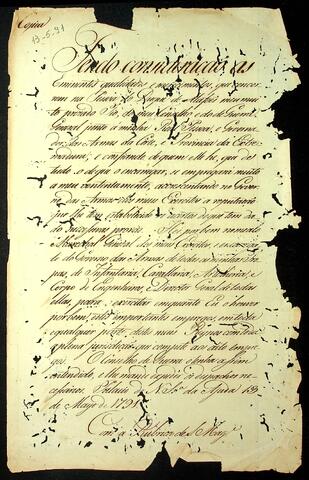 Copia
13-5-91
Tendo consideração ás
Eminentes qualidades e merecimentos, que concor-
rem na Pessoa do Duque de Alafoens meu mui-
to prezado Tio, do Meu Conselho e do de Guerra,
General junto á minha Real Pessoa, e Governa-
dor das Armas da Corte, e Provincia da Estre-
madura; e confiando de quem He he, que de
tudo o de que o encarregar, se empregará muito
a meu contentamento, accrescentando no Gover-
no das Armas dos meus Exercitos a reputação
que nelles tem estabelecido e acertos de que tem da-
do successivas provas: Hei por bem nomealo
Marechal General dos meus Exercitos, e encarrega-
lo do Governo das Armas de todas as minhas Tro-
pas, de Infantaria, Cavallaria, Artilharia, e
Corpo de Engenheiros, Director Geral de todas
ellas, para exercitar enquanto Eu o houver
por bem, estes importantes empregos, em toda
e qualquer parte dos meus Reynos com toda
a plena jurisdicção que compete aos ditos empre-
gos. O Conselho de Guerra o tenha assim
entendido, e lhe mande expedir os despachos ne-
cessarios. Palacio de N. Sra. da Ajuda 13
de Mayo de 1791.
Com a Rubrica de S. Mage.